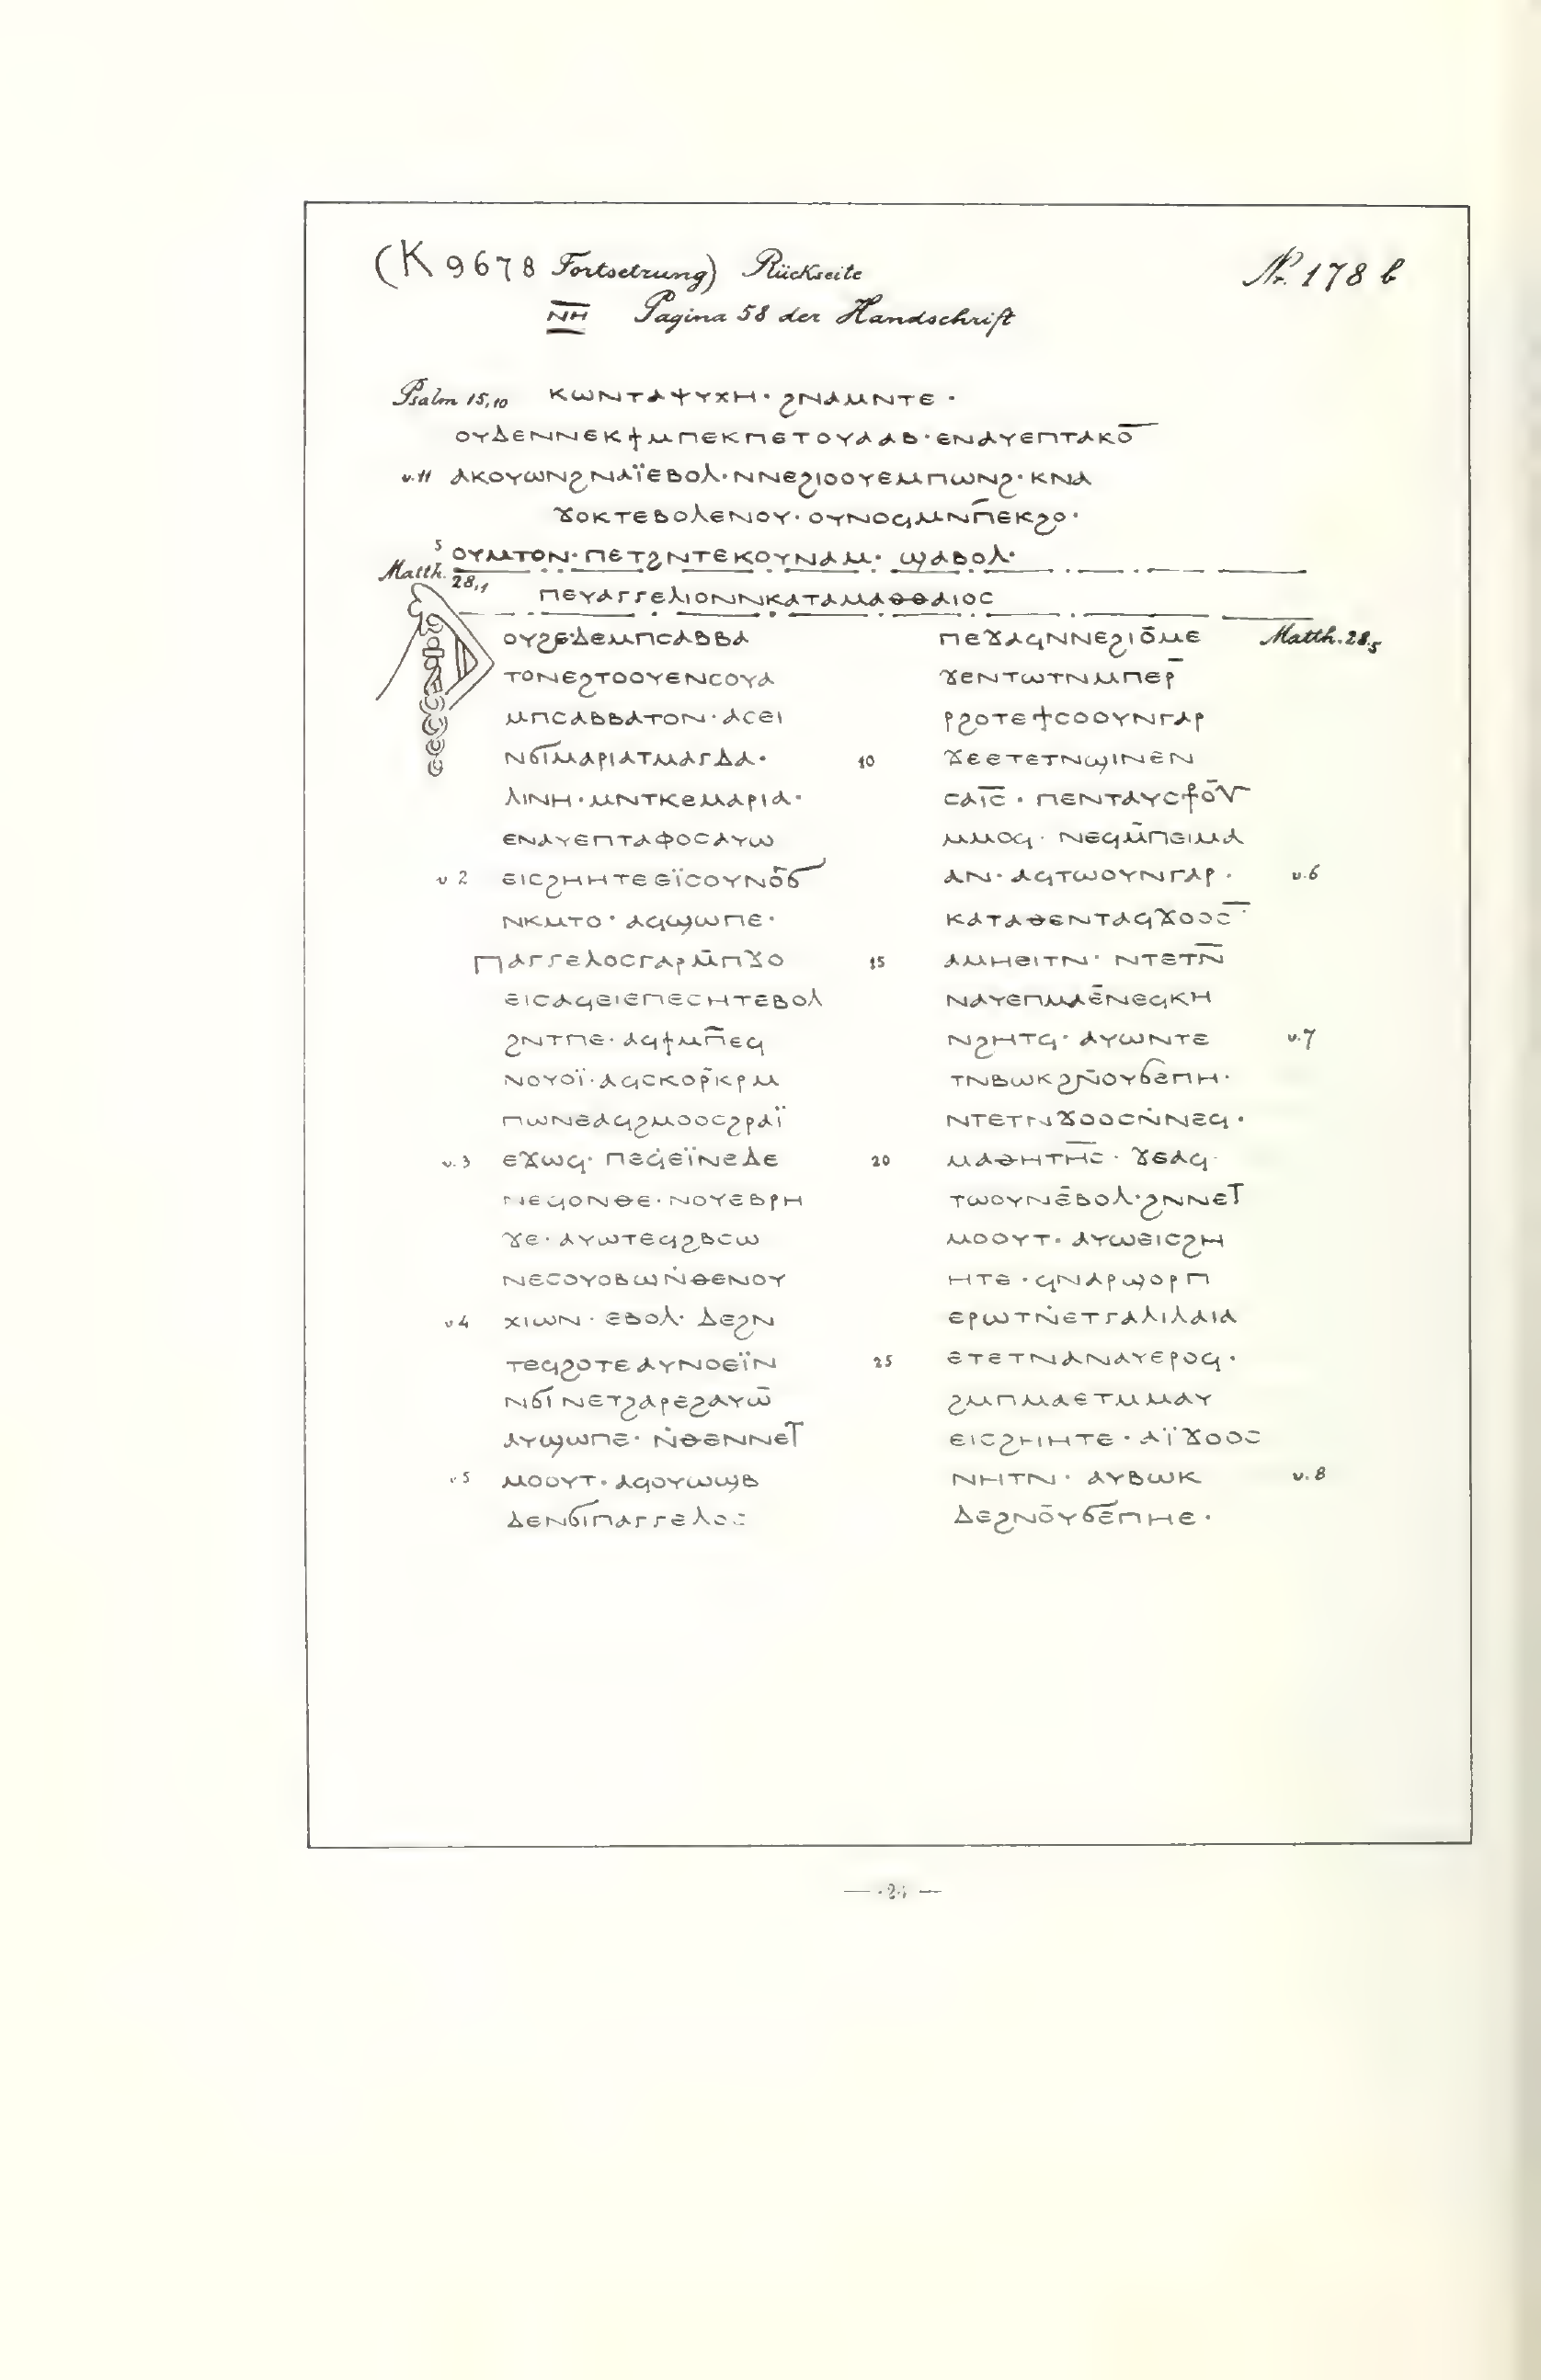 (K 9678 Fortsetzung) Rückseite
Nr. 178 b
ⲚⲎ Pagina 58 der Handschrift
Psalm 15,10 ⲕⲱⲛⲧⲁⲯⲩⲭⲏ· ϩⲛⲁⲙⲛⲧⲉ·
ⲟⲩⲇⲉⲛⲛⲉⲕϯⲙⲡⲉⲕⲡⲉⲧⲟⲩⲁⲁⲃ·ⲉⲛⲁⲩⲉⲡⲧⲁⲕⲟ̅
v.11 ⲁⲕⲟⲩⲱⲛϩⲛⲁⲓ̈ⲉⲃⲟⲗ·ⲛⲛⲉϩⲓⲟⲟⲩⲉⲙⲡⲱⲛϩ·ⲕⲛⲁ
ϫⲟⲕⲧⲉⲃⲟⲗⲉⲛⲟⲩ·ⲟⲩⲛⲟϥⲙⲛⲡ̅ⲉⲕϩⲟ·
5 ⲟⲩⲙⲧⲟⲛ·ⲡⲉⲧϩⲛⲧⲉⲕⲟⲩⲛⲁⲙ· ϣⲁⲃⲟⲗ·
Matth. 28,1
ⲡⲉⲩⲁⲅⲅⲉⲗⲓⲟⲛⲛⲕⲁⲧⲁⲙⲁⲑⲑⲁⲓⲟⲥ
ⲟⲩϩⲉ·ⲇⲉⲙⲡⲥⲁⲃⲃⲁ
ⲧⲟⲛⲉϩⲧⲟⲟⲩⲉⲛⲥⲟⲩⲁ
ⲙⲡⲥⲁⲃⲃⲁⲧⲟⲛ·ⲁⲥⲉⲓ
ⲛϭⲓⲙⲁⲣⲓⲁⲧⲙⲁⲅⲇⲁ·
ⲗⲓⲛⲏ·ⲙⲛⲧⲕⲉⲙⲁⲣⲓⲁ·
ⲉⲛⲁⲩⲉⲡⲧⲁⲫⲟⲥⲁⲩⲱ
v 2 ⲉⲓⲥϩⲏⲏⲧⲉⲉⲓ̈ⲥⲟⲩⲛⲟ̅ϭ
ⲛⲕⲙⲧⲟ·ⲁϥϣⲱⲡⲉ·
ⲡⲁⲅⲅⲉⲗⲟⲥⲅⲁⲣⲙ̅ⲡϫⲟ
ⲉⲓⲥⲁϥⲉⲓⲉⲡⲉⲥⲏⲧⲉⲃⲟⲗ
ϩⲛⲧⲡⲉ·ⲁϥϯⲙⲡ̅ⲉϥ
ⲛⲟⲩⲟⲓ̈·ⲁϥⲥⲕⲟⲣ̅ⲕⲣⲙ
ⲡⲱⲛⲉⲁϥϩⲙⲟⲟⲥϩⲣⲁⲓ̈
v.3 ⲉϫⲱϥ·ⲡⲉϥⲉⲓ̈ⲛⲉⲇⲉ
ⲛⲉϥⲟⲛⲑⲉ·ⲛⲟⲩⲉⲃⲣⲏ
ϫⲉ·ⲁⲩⲱⲧⲉϥϩⲃⲥⲱ
ⲛⲉⲥⲟⲩⲟⲃⲱⲛ̇ⲑⲉⲛⲟⲩ
v 4 ⲭⲓⲱⲛ·ⲉⲃⲟⲗ·ⲇⲉϩⲛ
ⲧⲉϥϩⲟⲧⲉⲁⲩⲛⲟⲉⲓ̈ⲛ
ⲛϭⲓⲛⲉⲧϩⲁⲣⲉϩⲁⲩⲱ̅
ⲁⲩϣⲱⲡⲉ·ⲛ̇ⲑⲉⲛⲛⲉⲧ
v 5 ⲙⲟⲟⲩⲧ·ⲁϥⲟⲩⲱϣⲃ
ⲇⲉⲛϭⲓⲡⲁⲅⲅⲉⲗⲟⲥ
ⲡⲉϫⲁϥⲛⲛⲉϩⲓⲟ̅ⲙⲉ Matth. 28,5
ϫⲉⲛⲧⲱⲧⲛⲙⲡⲉⲣ̅
ⲣϩⲟⲧⲉϯⲥⲟⲟⲩⲛⲅⲁⲣ
10 ϫⲉⲉⲧⲉⲧⲛϣⲓⲛⲉⲛ
ⲥⲁⲓ̅ⲥ̅·ⲡⲉⲛⲧⲁⲩⲥϯⲟ̅ⲩ
ⲙⲙⲟϥ·ⲛⲉϥⲙ̅ⲡⲉⲓⲙⲁ
ⲁⲛ·ⲁϥⲧⲱⲟⲩⲛⲅⲁⲣ· v.6
ⲕⲁⲧⲁⲑⲉⲛⲧⲁϥϫⲟⲟⲥ·
15 ⲁⲙⲏⲉⲓⲧⲛ·ⲛⲧⲉⲧⲛ̅
ⲛⲁⲩⲉⲡⲙⲁⲉ̅ⲛⲉϥⲕⲏ
ⲛϩⲏⲧϥ·ⲁⲩⲱⲛⲧⲉ v.7
ⲧⲛⲃⲱⲕϩⲛ̅ⲟⲩϭⲉⲡⲏ·
ⲛⲧⲉⲧⲛϫⲟⲟⲥⲛ̇ⲛⲉϥ·
20 ⲙⲁⲑⲏⲧⲏⲥ·ϫⲉⲁϥ·
ⲧⲱⲟⲩⲛⲉ̅ⲃⲟⲗ·ϩⲛⲛⲉⲧ
ⲙⲟⲟⲩⲧ·ⲁⲩⲱⲉⲓⲥϩⲏ
ⲏⲧⲉ·ϥⲛⲁⲣϣⲟⲣⲡ
ⲉⲣⲱⲧⲛ̇ⲉⲧⲅⲁⲗⲓⲗⲁⲓⲁ
25 ⲉⲧⲉⲧⲛⲁⲛⲁⲩⲉⲣⲟϥ·
ϩⲙⲡⲙⲁⲉⲧⲙⲙⲁⲩ
ⲉⲓⲥϩⲏⲏⲧⲉ·ⲁⲓ̈ϫⲟⲟⲥ
ⲛⲏⲧⲛ·ⲁⲩⲃⲱⲕ v.8
ⲇⲉϩⲛⲟ̅ⲩϭⲉ̅ⲡⲏⲉ·
— 24 —